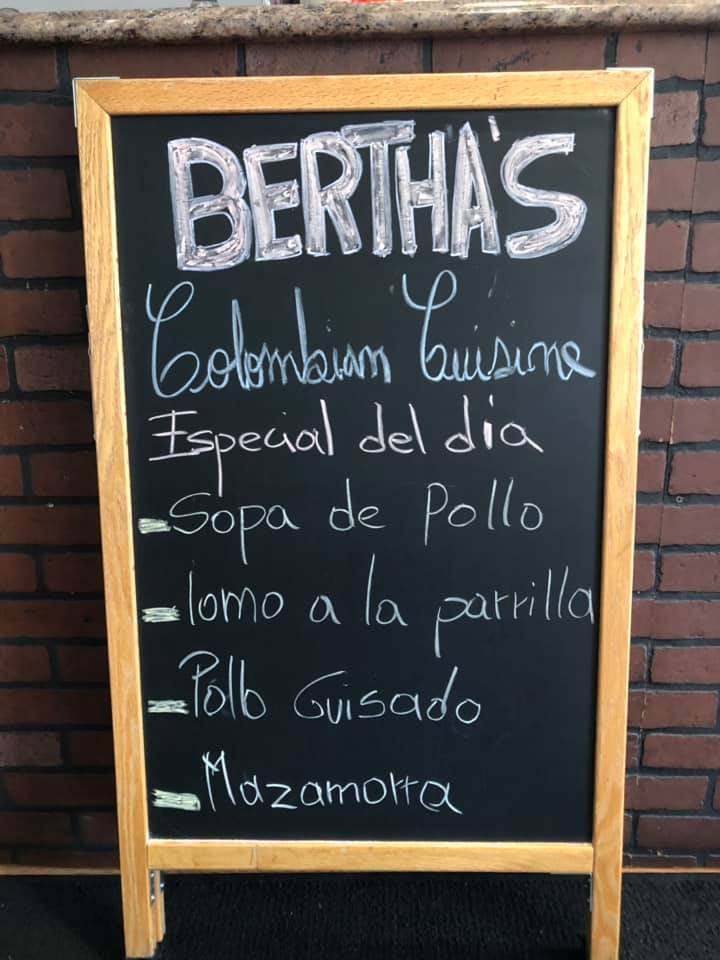 BERTHA'S
Colombian Cuisine
Especial del dia
- Sopa de Pollo
- lomo a la parrilla
- Pollo Guisado
- Mazamorra